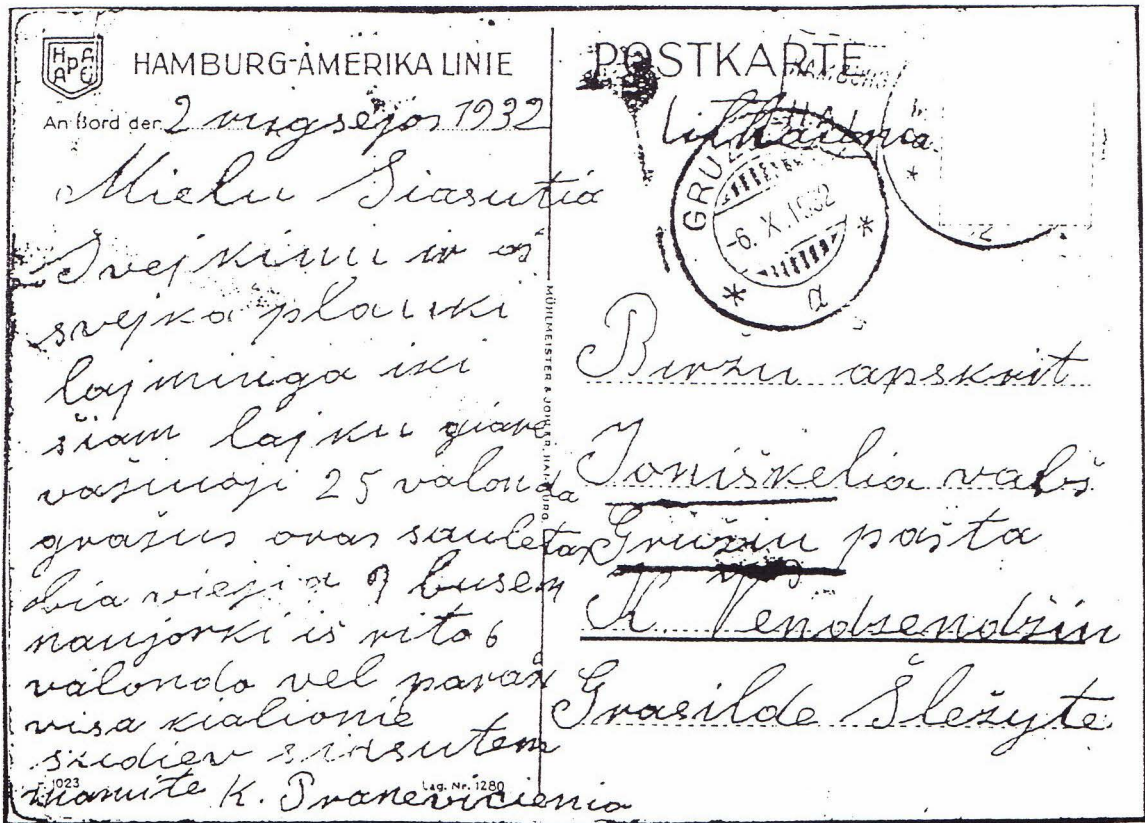 HAPAG
HAMBURG-AMERIKA LINIE
An Bord der 2 rugsėjos 1932
Mielu Siasutia
Svejkinu ir aš
svejka plauki
lajminga iki
šiam lajku giare
važiuoji 25 valonda
gražus oras sauletas
bia viejia 9 busem
naujorki iš rito 6
valonda vel parax
visa kialionie
sudiev siasutem
mamite K. Pranevicienia
1023
Lag. Nr. 1280
MÜHLMEISTER & JOHLER, HAMBURG
POSTKARTE
Lithuania
HAMBURG
GRU
-6. X. 1932
a
Biržu apskrit
Joniškelia valš
Gružiu pašta
K Vendzendžiu
Grasilde Šležyte